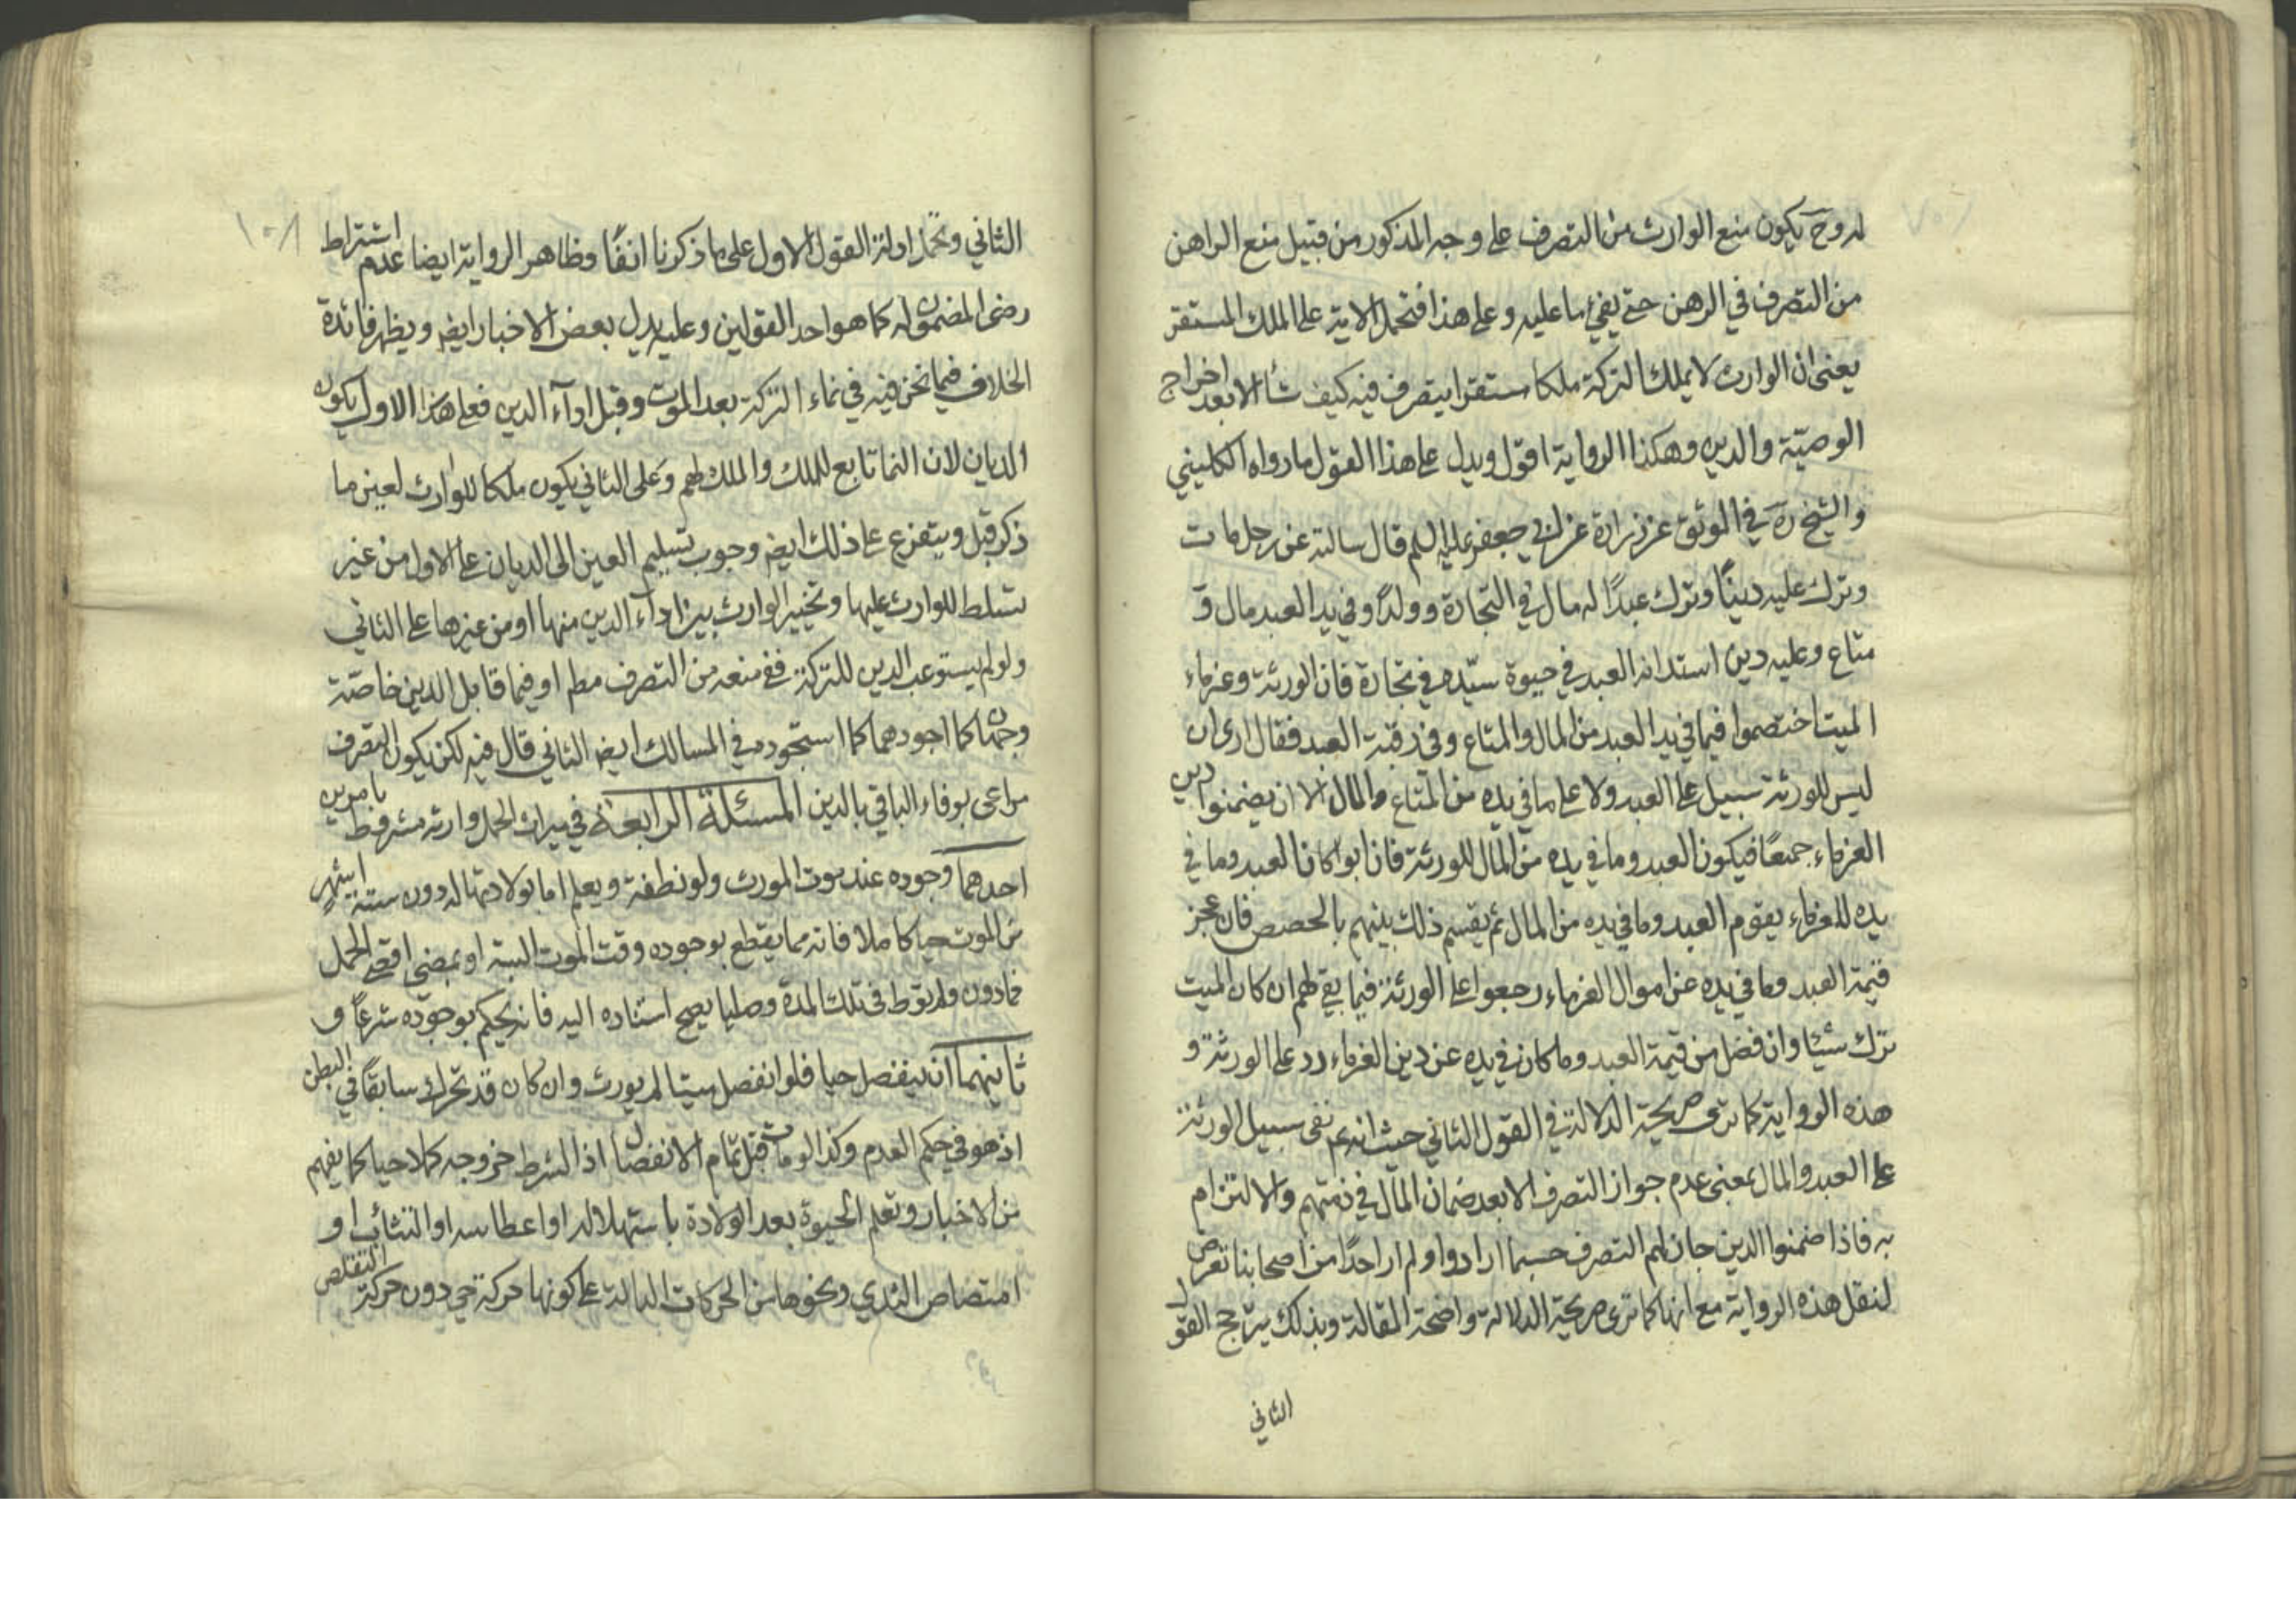 له وح يكون منع الوارث من التصرف على وجه المذكور من قبيل منع الراهن
من التصرف في الرهن حتى يفي ما عليه وعلى هذا فتحمل الاية على الملك المستقر
يعني ان الوارث لا يملك التركة ملكا مستقرا يتصرف فيه كيف شاء الا بعد اخراج
الوصيّة والدين وهكذا الرواية اقول ويدل على هذا القول ما رواه الكليني
والشيخ ره في الموثق عن زرارة عن ابي جعفر عليه السلم قال سالته عن رجل مات
وترك عليه دينًا وترك عبدًا له مال في التجارة وولدًا وفي يد العبد مال و
متاع وعليه دين استدانه العبد في حيوة سيّده في تجارة فان الورثة وغرماء
الميت اختصموا فيما في يد العبد من المال والمتاع وفي رقبة العبد فقال ارى ان
ليس للورثة سبيل على العبد ولا على ما في يده من المتاع والمال الا ان يضمنوا دين
الغرماء جميعًا فيكون العبد وما في يده من المال للورثة فان ابوا كان العبد وما في
يده للغرماء يقوم العبد وما في يده من المال ثم يقسم ذلك بينهم بالحصص فان عجز
قيمة العبد وما في يده عن اموال الغرماء رجعوا على الورثة فيما بقي لهم ان كان الميت
ترك شيئا وان فضل من قيمة العبد وما كان في يده عن دين الغرماء رد على الورثة و
هذه الرواية كما ترى صريحة الدلالة في القول الثاني حيث انه ع نفى سبيل الورثة
على العبد والمال بمعنى عدم جواز التصرف الا بعد ضمان المال في ذمتهم والالتزام
به فاذا ضمنوا الدين جاز لهم التصرف حسبما ارادوا ولم ار احدًا من اصحابنا تعرض
لنقل هذه الرواية مع انها كما ترى صريحة الدلالة واضحة المقالة وبذلك يترجح القول
الثاني
١٠٨
الثاني وتحمل ادلة القول الاول على ما ذكرنا انفًا وظاهر الرواية ايضا عدم اشتراط
رضى المضمون له كما هو احد القولين وعليه يدل بعض الاخبار ايضا ويظهر فائدة
الخلاف فيما نحن فيه في نماء التركة بعد الموت وقبل اداء الدين فعلى هذا الاول يكون
الديان لان النما تابع للملك والملك لهم وعلى الثاني يكون ملكا للوارث لعين ما
ذكر قبل ويتفرع على ذلك ايضا وجوب تسليم العين الى الديان على الاول من غير
تسلط للوارث عليها وتخيير الوارث بين اداء الدين منها او من غيرها على الثاني
ولو لم يستوعب الدين للتركة ففي منعه من التصرف مطم او فيما قابل الدين خاصّة
وجهان كما اجودهما كما استجوده في المسالك ايضا الثاني قال فيه لكن يكون التصرف
مراعى بوفاء الباقي بالدين المسئلة الرابعة في ميراث الحمل وارثه مشروط بامرين
احدهما وجوده عند موت المورث ولو نطفة ويعلم اما بولادتها له دون ستة اشهر
من الموت حيا كاملا فانه مما يقطع بوجوده وقت الموت البتة او بمضي اقصى الحمل
فما دون ولم توط في تلك المدة وطيا يصح استناده اليه فانه يحكم بوجوده شرعًا و
ثانيهما ان ينفصل حيا فلو انفصل ميتا لم يورث وان كان قد تحرك سابقًا في البطن
اذ هو في حكم العدم وكذا لو مات قبل تمام الانفصال اذ الشرط خروجه كملا حيا كما يفهم
من الاخبار وتعلم الحيوة بعد الولادة باستهلاله او اعطاسه او التثائب او
امتصاص الثدي ونحوها من الحركات الدالة على كونها حركة حي دون حركة التقلص